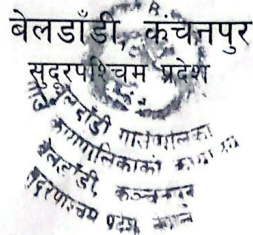 बेलडाँडी, कंचनपुर
सुदूरपश्चिम प्रदेश
बेलडाँडी गाउँपालिका
बेलडाँडी, कञ्चनपुर
सुदूरपश्चिम प्रदेश नेपाल